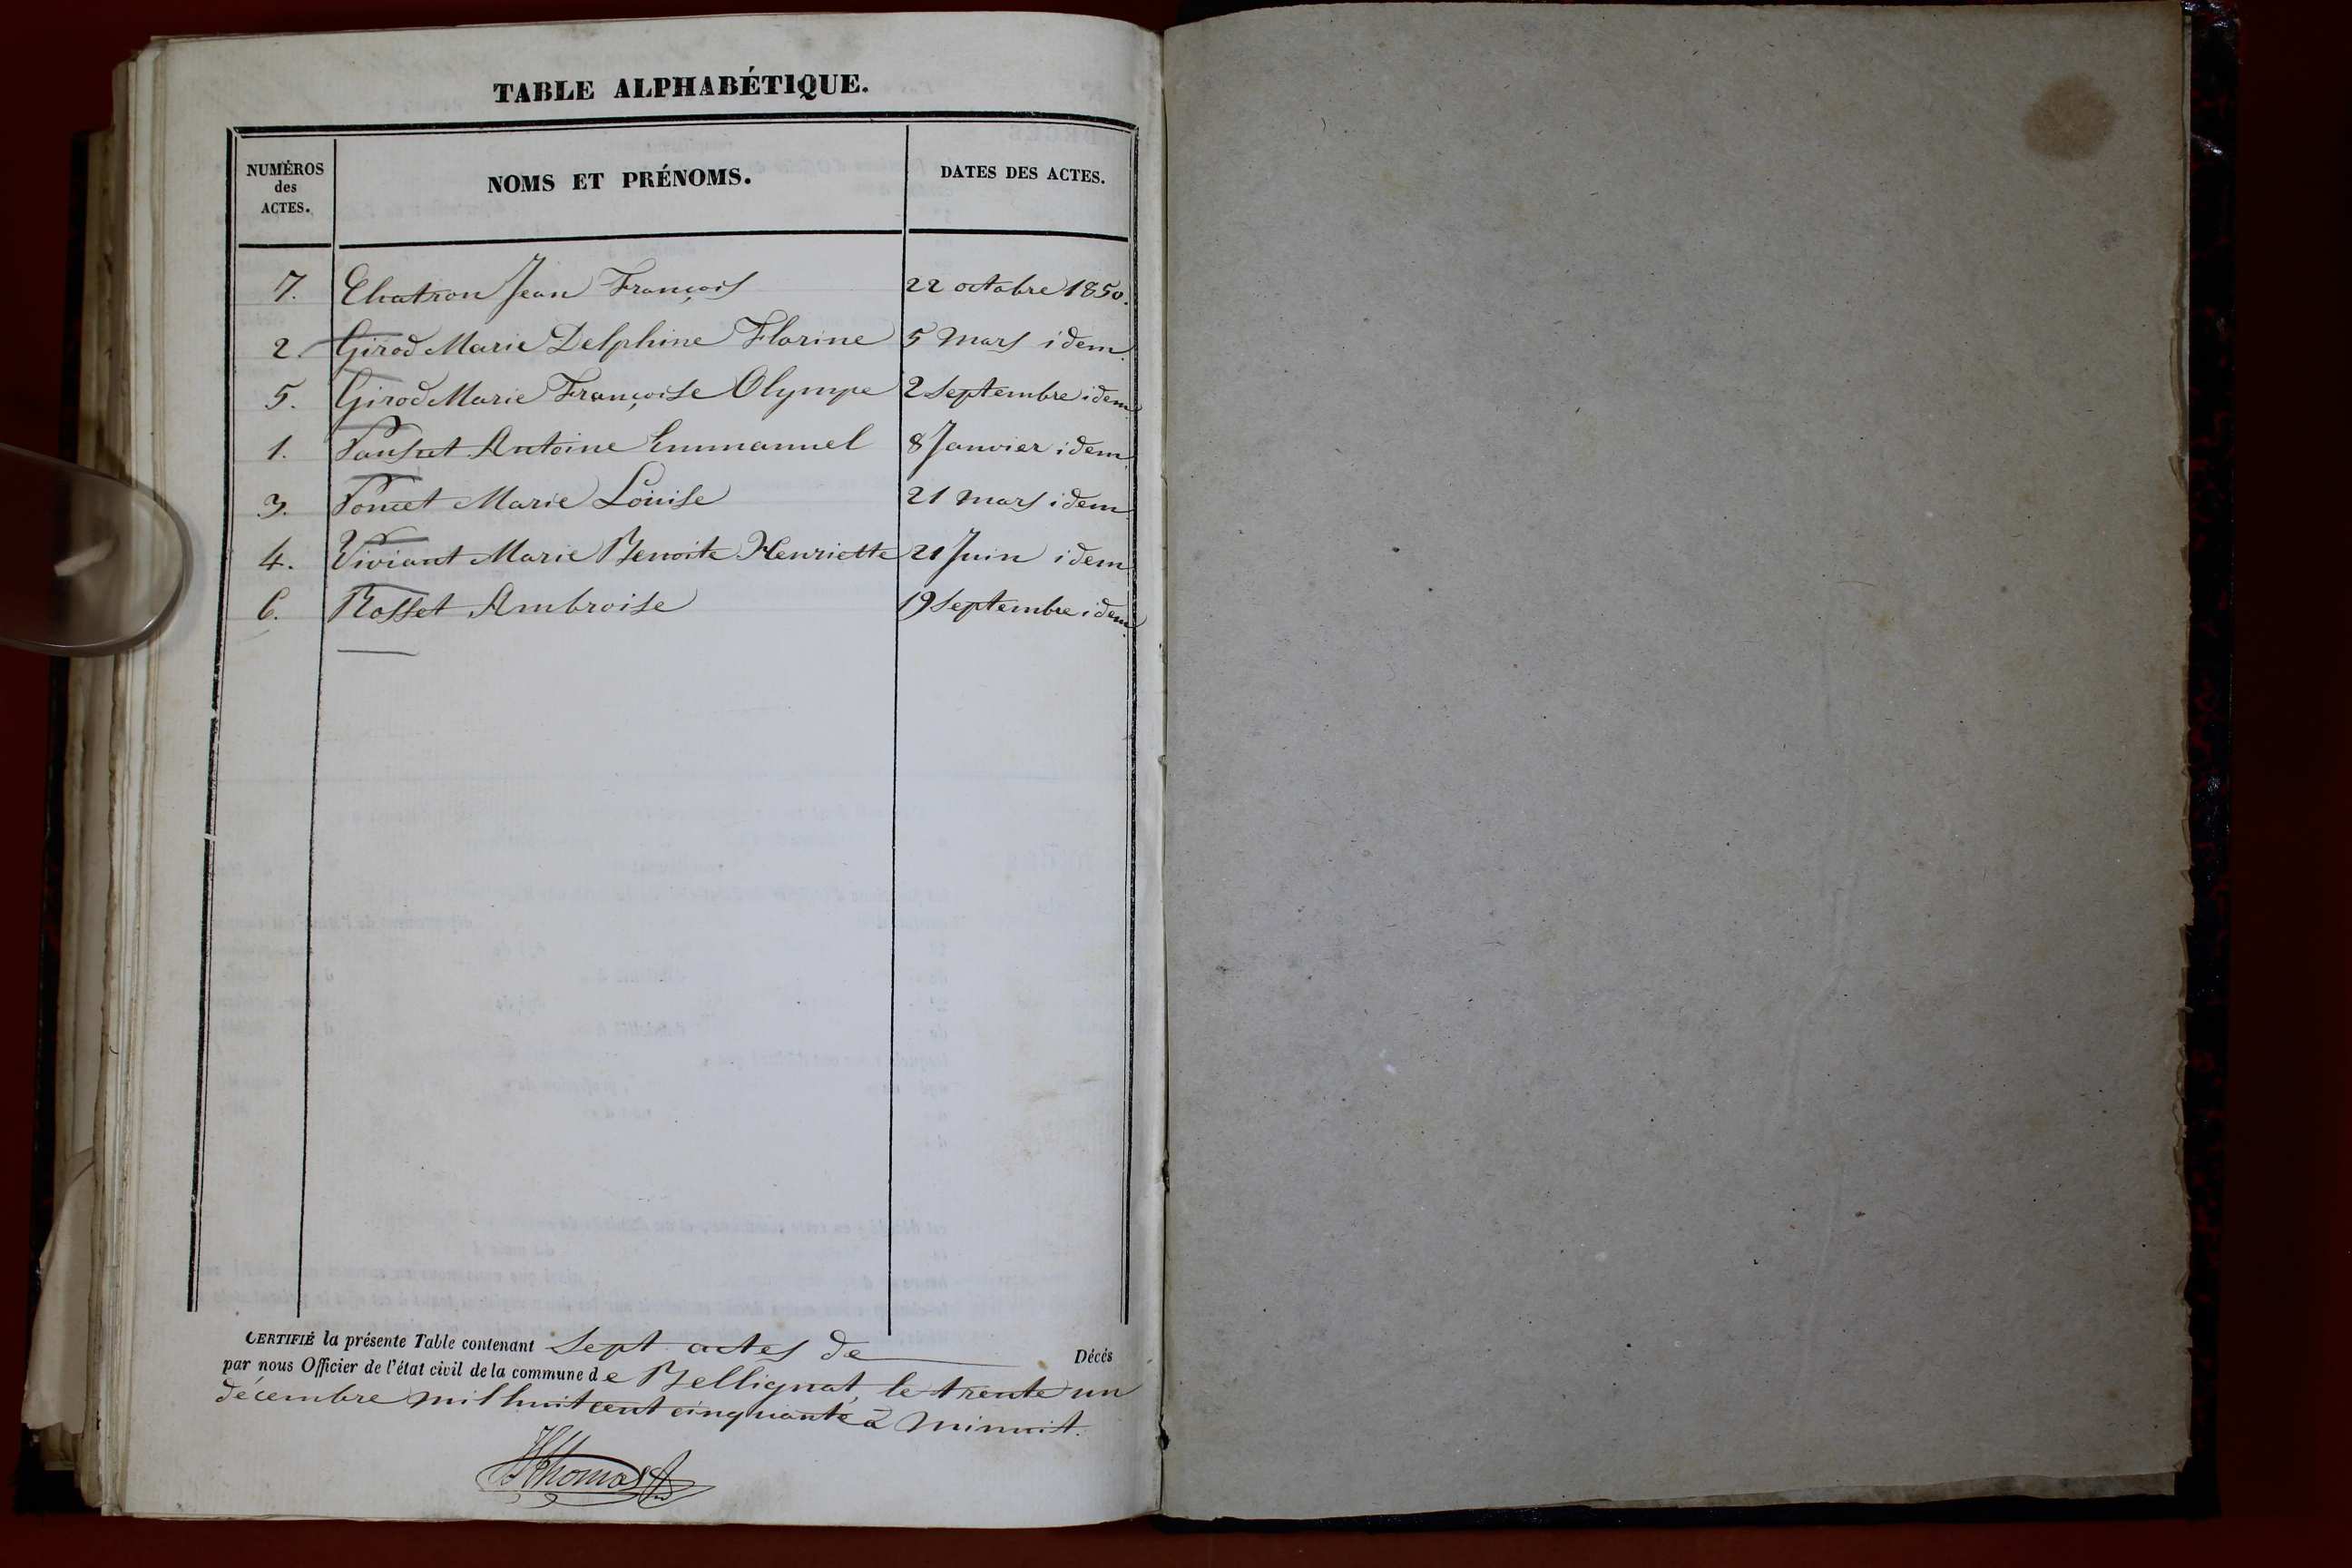 TABLE ALPHABÉTIQUE.
NUMÉROS des ACTES. NOMS ET PRÉNOMS. DATES DES ACTES.
7. Chatron Jean François 22 octobre 1850.
2. Girod Marie Delphine Florine 5 Mars idem.
5. Girod Marie Françoise Olympe 2 Septembre idem
1. Antoine Emmanuel 8 Janvier idem.
3. Poncet Marie Louise 21 Mars idem
4. Viviant Marie Benoite Henriette 21 Juin idem
6. Rosset Ambroise 19 Septembre idem.
CERTIFIÉ la présente Table contenant Sept actes de Décés
par nous Officier de l'état civil de la commune de Bellignat, le trente un
décembre mil huit cent cinquante à minuit.
Thomas